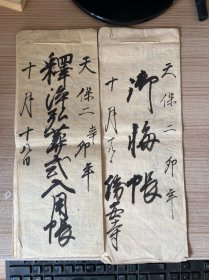 天保二卯年
御悔帳
十月
寺
天保二辛卯年
釋浄弘葬式入用帳
十月十六日